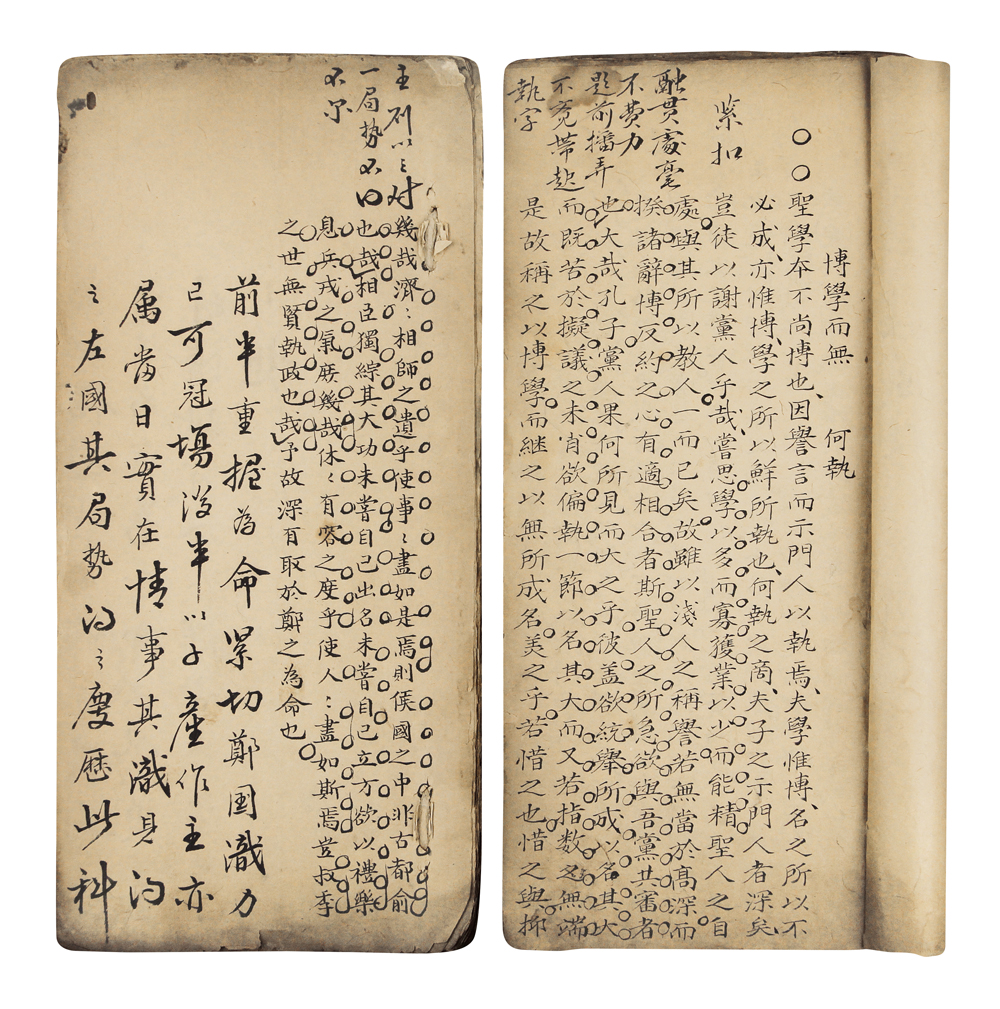 博學而無　何執
聖學本不尚博也因譽言而示門人以執焉夫學惟博名之所以不
必成亦惟博學之所以鮮所執也何執之商夫子之示門人者深矣
豈徒以謝黨人乎哉嘗思學以多而寡獲業以少而能精聖人之自
處與其所以教人一而已矣故雖以淺人之稱譽若無當於高深而
揆諸辭博反約之心有適相合者斯聖人之所急欲與吾黨共審者
也大哉孔子黨人果何所見而大之乎彼蓋欲統舉所成以名其大
而既苦於擬議之未肖欲偏執一節以名其大而又若指數之無端
是故稱之以博學而繼之以無所成名美之乎若惜之也惜之與抑
緊扣
融貫處毫
不費力
題前播弄
不寬帶起
執字
主
一局勢不
不
幾哉濟：相師之遺乎使事：盡如是焉則侯國之中非古都俞
也哉相臣獨綜其大功未嘗自已出名未嘗自已立方欲以禮樂
息兵戎之氣庶幾哉休：有容之度乎使人：盡如斯焉豈叔季
之世無賢執政也哉予故深有取於鄭之為命也
前半重握為命緊切鄭國識力
已可冠場後半以子產作主亦
属當日實在情事其識見
左國其局勢歷此科